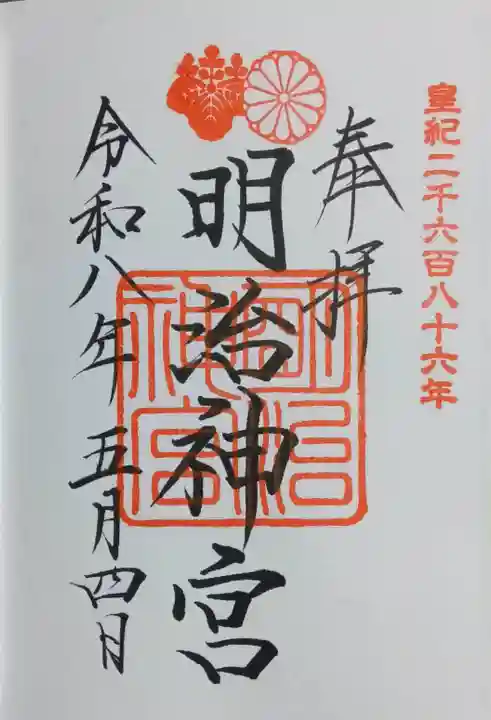 皇紀二千六百八十六年
奉拝
明治神宮
明治神宮
令和八年五月四日